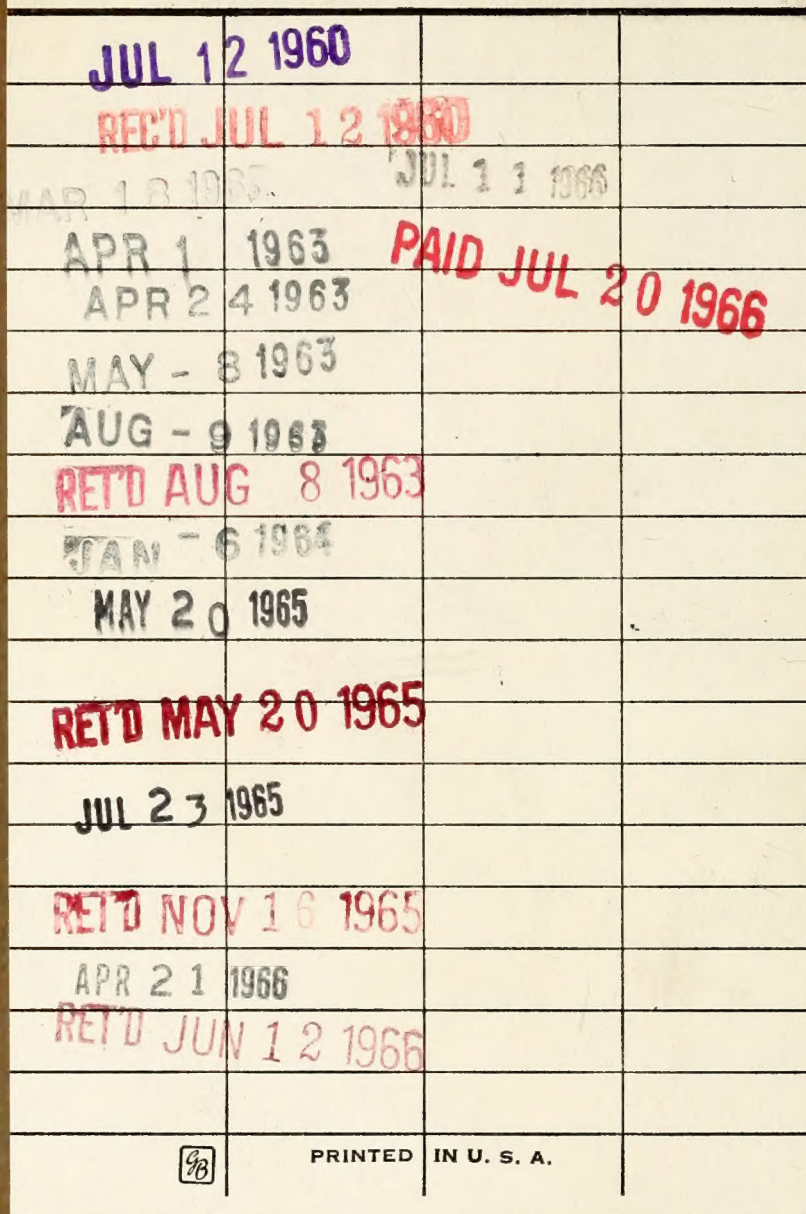 JUL 12 1960
REC'D JUL 12 1960
MAR 18 1963
JUL 11 1966
APR 1 1963
PAID JUL 20 1966
APR 24 1963
MAY - 8 1963
AUG - 9 1963
RET'D AUG 8 1963
JAN - 6 1964
MAY 20 1965
RET'D MAY 20 1965
JUL 23 1965
RET'D NOV 16 1965
APR 21 1966
RET'D JUN 12 1966
GB PRINTED IN U. S. A.